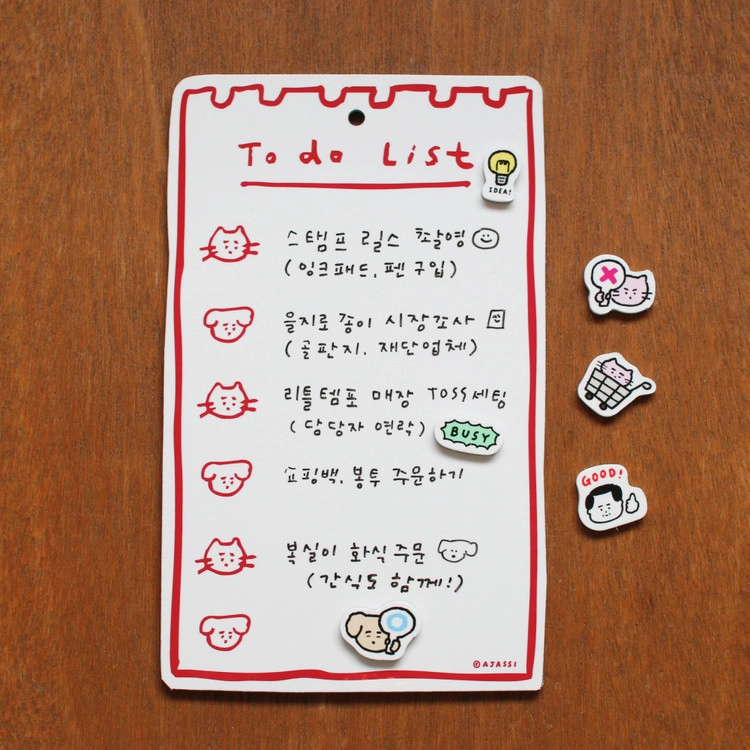 To do List
IDEA!
스탬프 릴스 촬영
(잉크패드, 펜 구입)
을지로 종이 시장조사
(골판지, 재단업체)
리틀템포 매장 TOSS 세팅
(담당자 연락)
BUSY
쇼핑백, 봉투 주문하기
복실이 화식 주문
(간식도 함께!)
GOOD!
©AJASSI